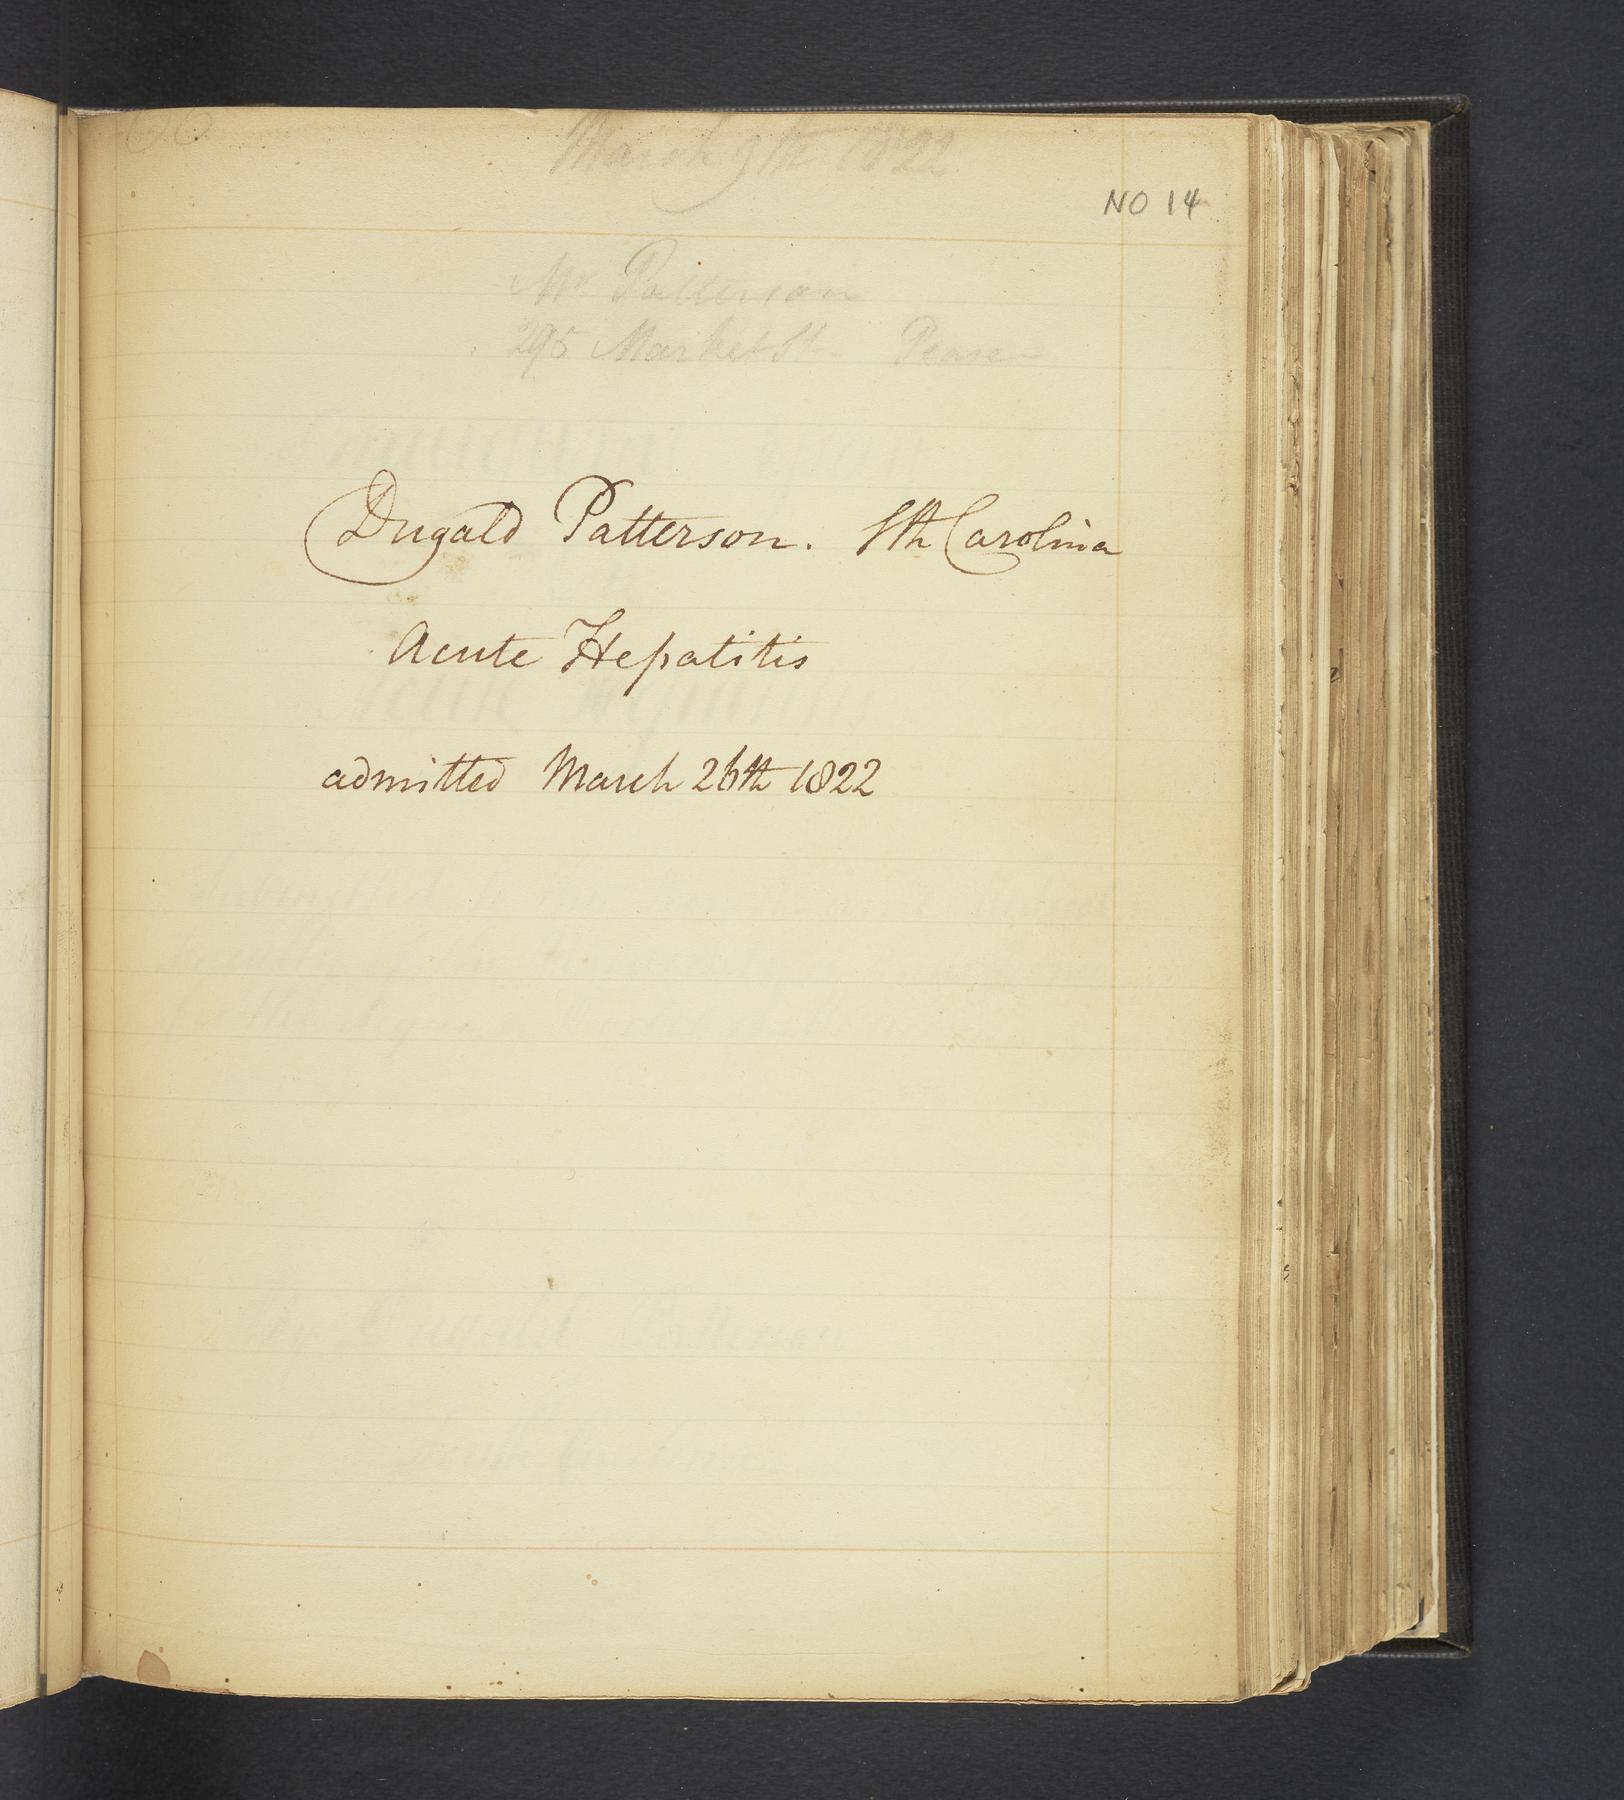 March 9th 1822
NO 14
Mr Patterson
295 Market St - Pease
Dugald Patterson. Sth Carolina
Acute Hepatitis
admitted March 26th 1822